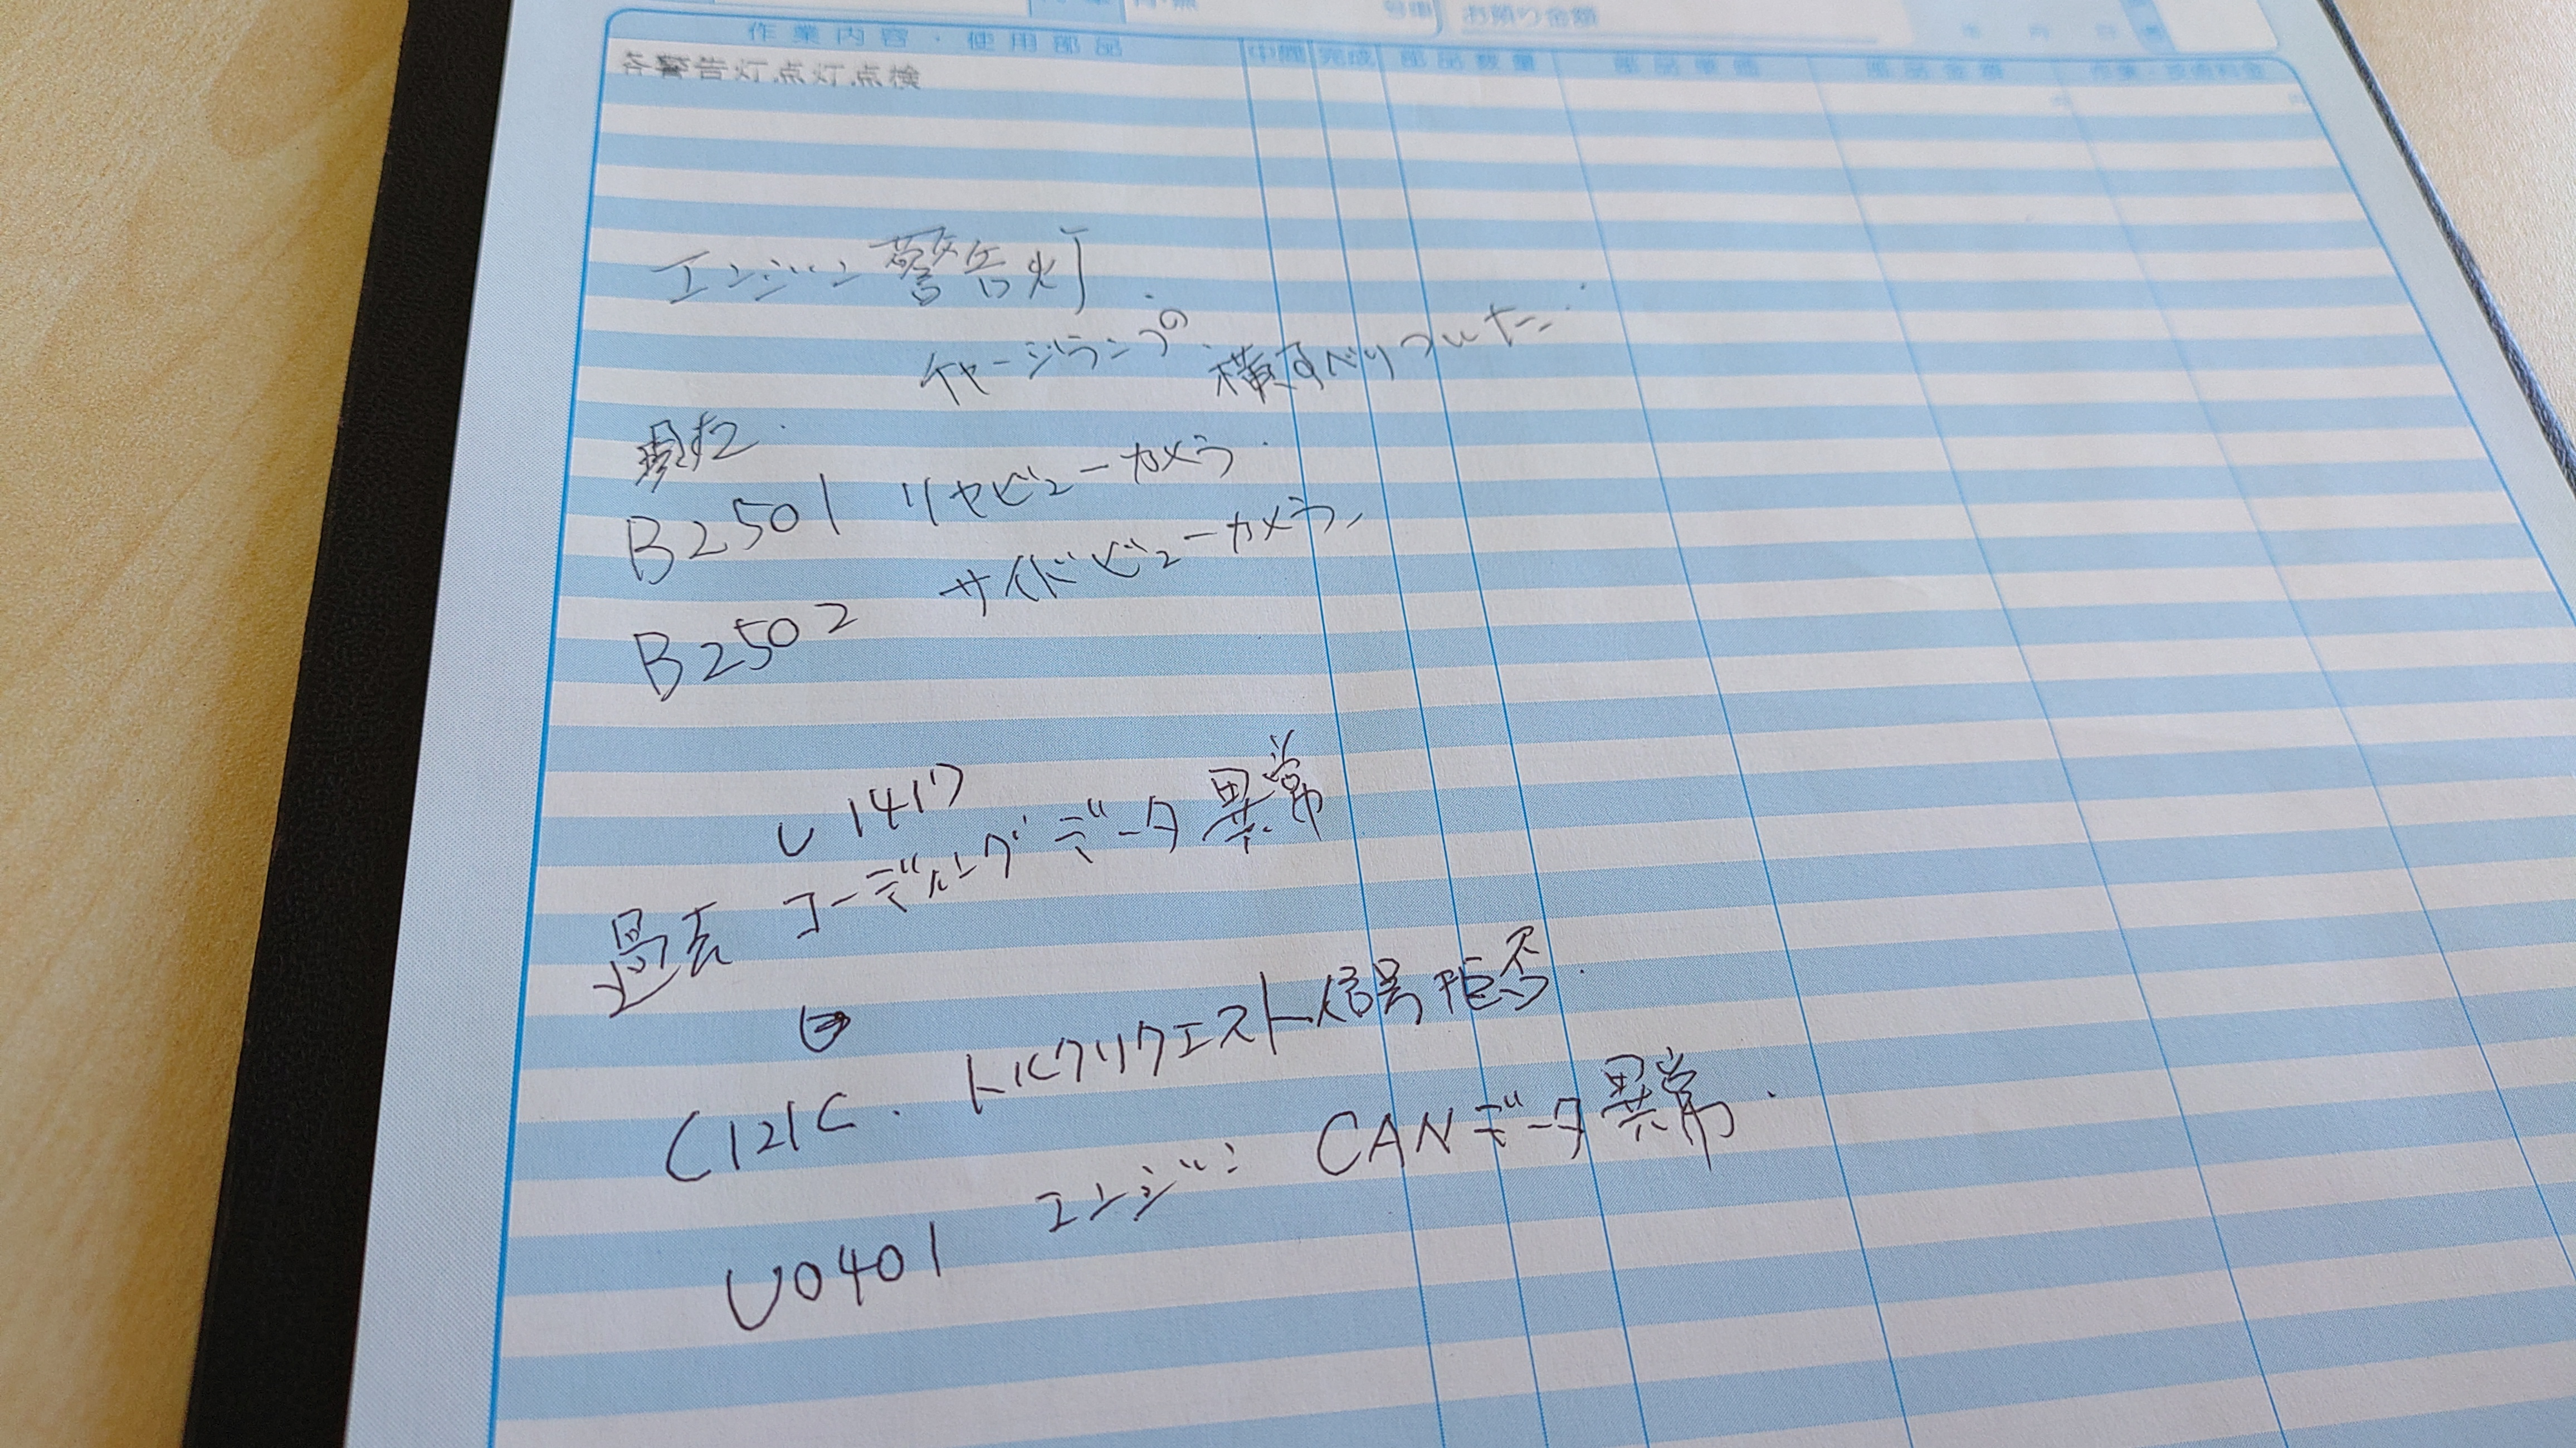 お預り金額
作業内容・使用部品 中間 完成 部品数量 部品単価 部品金額
各警告灯点灯点検
エンジン警告灯
チャージランプの 横すべりついた
現在
B2501 リヤビューカメラ
B2502 サイドビューカメラ
U1417
過去 コーディングデータ異常
C121C. トルクリクエスト信号拒否.
U0401 エンジン CANデータ異常.